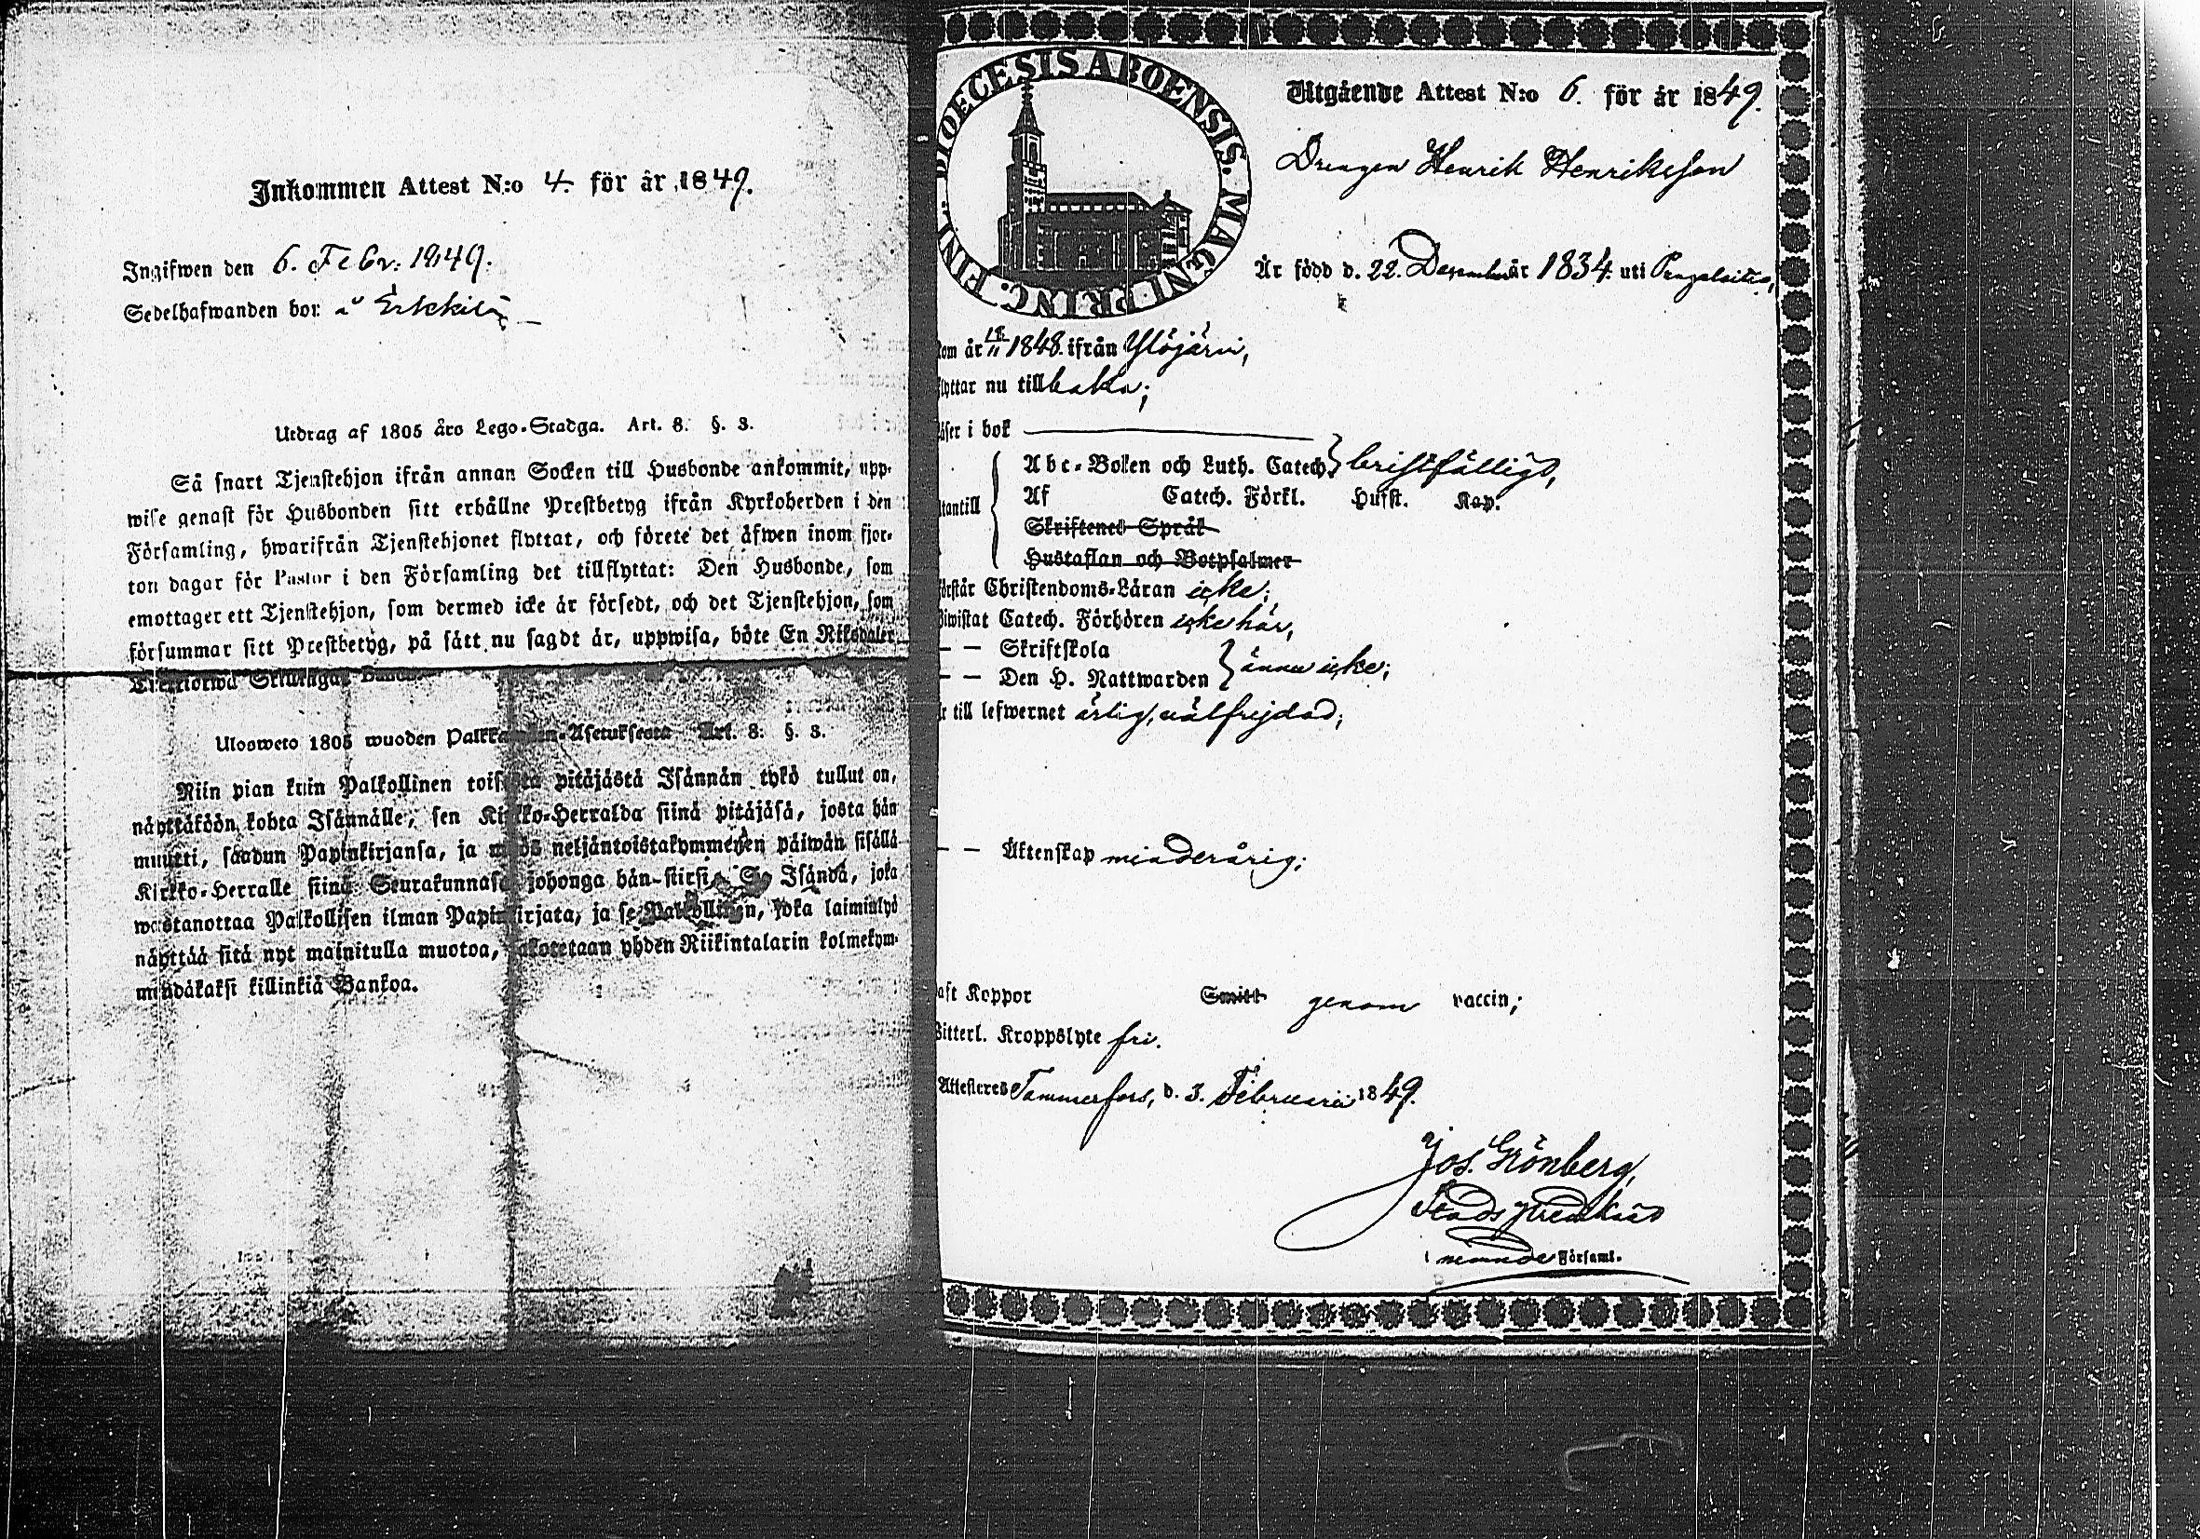 Inkommen Attest N:o 4. för år 1849.
Ingifwen den 6. Febr. 1849.
Sedelhafwanden bor å Erkkilä
Utdrag af 1805 års Lego-Stadga. Art. 8. §. 3.
Så snart Tjenstehjon ifrån annan Socken till Husbonde ankommit, upp-
wise genast för Husbonden sitt erhållne Prestbetyg ifrån Kyrkoherden i den
Församling, hwarifrån Tjenstehjonet flyttat, och förete det äfwen inom fjor-
ton dagar för Pastor i den Församling det tillflyttat: Den Husbonde, som
emottager ett Tjenstehjon, som dermed icke är försedt, och det Tjenstehjon, som
försummar sitt Prestbetyg, på sätt nu sagdt är, uppwisa, böte En Riksdaler
Ulosweto 1805 wuoden Palkka -Asetuksesta Art. 8. §. 3.
Niin pian kuin Palkollinen toisesta pitäjästä Isännän tykö tullut on,
näyttäköön kohta Isännälle, sen Kirkko-Herralda siinä pitäjäsä, josta hän
muutti, saadun Papinkirjansa, ja myös neljäntoistakymmenen päiwän sisällä
Kirkko-Herralle siinä Seurakunnasa johonga hän siirsi. Se Isändä, joka
wastanottaa Palkollisen ilman Papinkirjata, ja se Palkollinen, joka laiminlyö
näyttää sitä nyt mainitulla muotoa, sakotetaan yhden Riikintalarin kolmekym-
mendäkaksi killinkiä Bankoa.
DIOECESIS ABOENSIS. MAGNI PRINC. FINL.
Utgående Attest N:o 6. för år 1849.
Drengen Henrik Henriksson
Är född d. 22. December år 1834 uti
kom år 18/11 1848. ifrån Ylöjärvi,
flyttar nu tillbaka;
läser i bok
Abc-Boken och Luth. Catech. bristfälligt,
utantill Af Catech. Förkl. Husst. Kap.
Skriftenes Språk
Hustaflan och Botpsalmer
förstår Christendoms-Läran icke;
Biwistat Catech. Förhören icke här,
— — Skriftskola
— — Den H. Nattwarden ännu icke;
är till lefwernet ärlig, välfrejdad;
— — Äktenskap minderårig;
haft Koppor Smitt genom vaccin;
Witterl. Kroppslyte fri.
Attesteres Tammerfors, d. 3. Februarii 1849.
Jos. Grönberg,
Stads
i nemnde Församl.